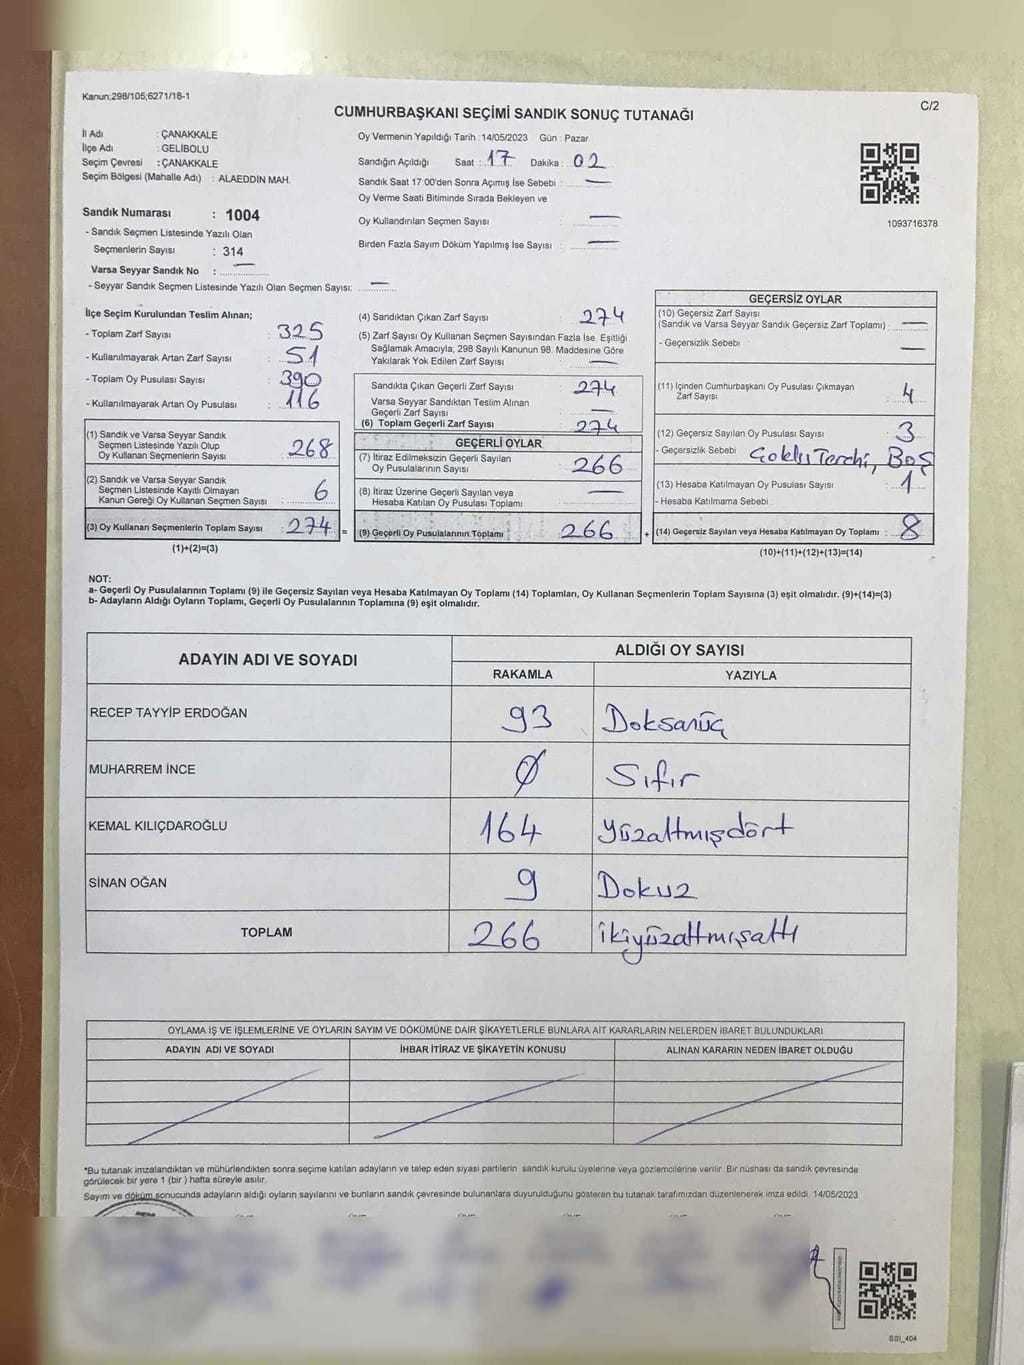 Kanun;298/105;6271/18-1
C/2
CUMHURBAŞKANI SEÇİMİ SANDIK SONUÇ TUTANAĞI
İl Adı : ÇANAKKALE
İlçe Adı : GELİBOLU
Seçim Çevresi : ÇANAKKALE
Seçim Bölgesi (Mahalle Adı) : ALAEDDİN MAH.
Sandık Numarası : 1004
- Sandık Seçmen Listesinde Yazılı Olan
Seçmenlerin Sayısı : 314
Varsa Seyyar Sandık No : —
- Seyyar Sandık Seçmen Listesinde Yazılı Olan Seçmen Sayısı: —
Oy Vermenin Yapıldığı Tarih : 14/05/2023 Gün : Pazar
Sandığın Açıldığı Saat : 17 Dakika : 02
Sandık Saat 17:00'den Sonra Açımış İse Sebebi : —
Oy Verme Saati Bitiminde Sırada Bekleyen ve
Oy Kullandırılan Seçmen Sayısı —
Birden Fazla Sayım Döküm Yapılmış İse Sayısı : —
1093716378
İlçe Seçim Kurulundan Teslim Alınan;
- Toplam Zarf Sayısı : 325
- Kullanılmayarak Artan Zarf Sayısı : 51
- Toplam Oy Pusulası Sayısı : 390
- Kullanılmayarak Artan Oy Pusulası : 116
(1) Sandık ve Varsa Seyyar Sandık
Seçmen Listesinde Yazılı Olup
Oy Kullanan Seçmenlerin Sayısı : 268
(2) Sandık ve Varsa Seyyar Sandık
Seçmen Listesinde Kayıtlı Olmayan
Kanun Gereği Oy Kullanan Seçmen Sayısı : 6
(3) Oy Kullanan Seçmenlerin Toplam Sayısı : 274 =
(1)+(2)=(3)
(4) Sandıktan Çıkan Zarf Sayısı : 274
(5) Zarf Sayısı Oy Kullanan Seçmen Sayısından Fazla İse, Eşitliği
Sağlamak Amacıyla; 298 Sayılı Kanunun 98. Maddesine Göre
Yakılarak Yok Edilen Zarf Sayısı : —
Sandıkta Çıkan Geçerli Zarf Sayısı : 274
Varsa Seyyar Sandıktan Teslim Alınan
Geçerli Zarf Sayısı : —
(6) Toplam Geçerli Zarf Sayısı : 274
GEÇERLİ OYLAR
(7) İtiraz Edilmeksizin Geçerli Sayılan
Oy Pusulalarının Sayısı : 266
(8) İtiraz Üzerine Geçerli Sayılan veya
Hesaba Katılan Oy Pusulası Toplamı : —
(9) Geçerli Oy Pusulalarının Toplamı : 266 +
GEÇERSİZ OYLAR
(10) Geçersiz Zarf Sayısı
(Sandık ve Varsa Seyyar Sandık Geçersiz Zarf Toplamı) : —
- Geçersizlik Sebebi —
(11) İçinden Cumhurbaşkanı Oy Pusulası Çıkmayan
Zarf Sayısı : 4
(12) Geçersiz Sayılan Oy Pusulası Sayısı : 3
- Geçersizlik Sebebi : Çoklu Tercih, Boş
(13) Hesaba Katılmayan Oy Pusulası Sayısı : 1
- Hesaba Katılmama Sebebi :
(14) Geçersiz Sayılan veya Hesaba Katılmayan Oy Toplamı : 8
(10)+(11)+(12)+(13)=(14)
NOT:
a- Geçerli Oy Pusulalarının Toplamı (9) ile Geçersiz Sayılan veya Hesaba Katılmayan Oy Toplamı (14) Toplamları, Oy Kullanan Seçmenlerin Toplam Sayısına (3) eşit olmalıdır. (9)+(14)=(3)
b- Adayların Aldığı Oyların Toplamı, Geçerli Oy Pusulalarının Toplamına (9) eşit olmalıdır.
ADAYIN ADI VE SOYADI
ALDIĞI OY SAYISI
RAKAMLA YAZIYLA
RECEP TAYYİP ERDOĞAN 93 Doksanüç
MUHARREM İNCE 0 Sıfır
KEMAL KILIÇDAROĞLU 164 Yüzaltmışdört
SİNAN OĞAN 9 Dokuz
TOPLAM 266 ikiyüzaltmışaltı
OYLAMA İŞ VE İŞLEMLERİNE VE OYLARIN SAYIM VE DÖKÜMÜNE DAİR ŞİKAYETLERLE BUNLARA AİT KARARLARIN NELERDEN İBARET BULUNDUKLARI
ADAYIN ADI VE SOYADI İHBAR İTİRAZ VE ŞİKAYETİN KONUSU ALINAN KARARIN NEDEN İBARET OLDUĞU
*Bu tutanak imzalandıktan ve mühürlendikten sonra seçime katılan adayların ve talep eden siyasi partilerin sandık kurulu üyelerine veya gözlemcilerine verilir. Bir nüshası da sandık çevresinde
görülecek bir yere 1 (bir) hafta süreyle asılır.
Sayım ve döküm sonucunda adayların aldığı oyların sayılarını ve bunların sandık çevresinde bulunanlara duyurulduğunu gösteren bu tutanak tarafımızdan düzenlenerek imza edildi. 14/05/2023
SSI_404